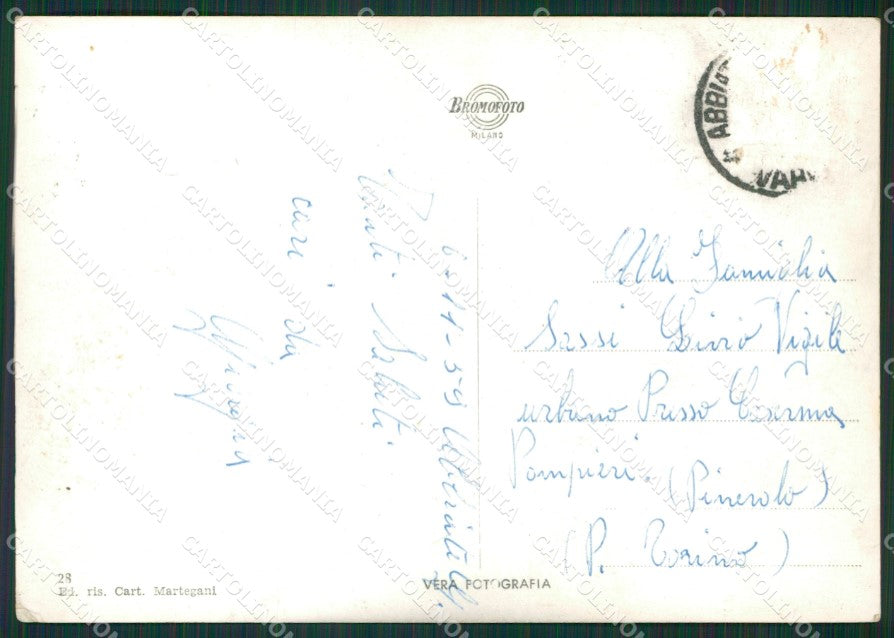 BROMOFOTO
MILANO
ABBIAT
VAR
6-11-59
Tanti Saluti
cari da
Alla Famiglia
Sassi Livio Vigile
urbano Presso Caserma
Pompieri. (Pinerolo)
(P. Torino)
28
Ed. ris. Cart. Martegani
VERA FOTOGRAFIA
CARTOLINOMANIA